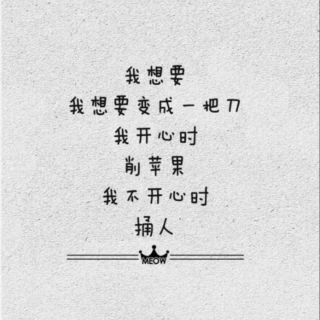 我想要
我想要变成一把刀
我开心时
削苹果
我不开心时
捅人
MEOW